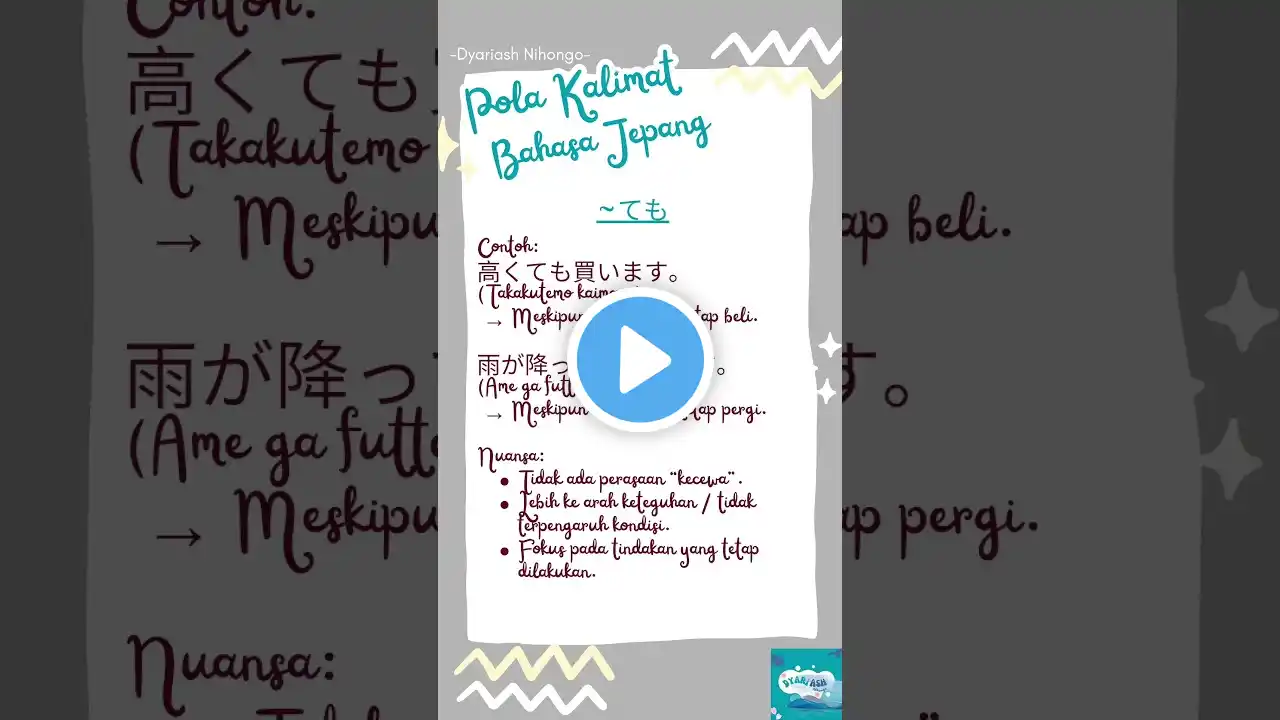 -Dyariash Nihongo-
Pola Kalimat
Bahasa Jepang
~ても
Contoh:
高くても買います。
(Takakutemo
→ Meskipun tap beli.
雨が降っ 。
(Ame ga
→ Meskipun tap pergi.
Nuansa:
• Tidak ada perasaan “kecewa”.
• Lebih ke arah keteguhan / tidak
terpengaruh kondisi.
• Fokus pada tindakan yang tetap
dilakukan.
DYARIASH